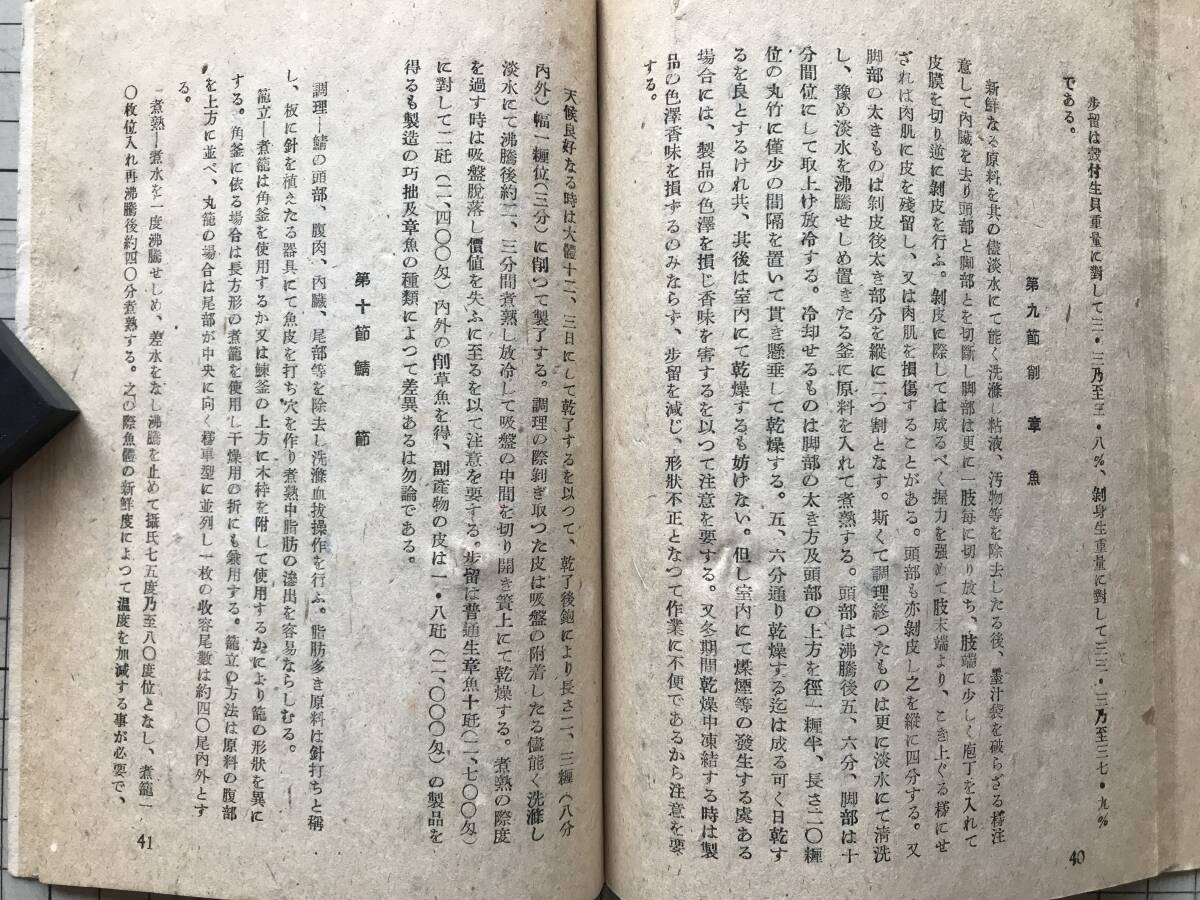 步留は殼付生貝重量に對して三・三乃至三・八%、剝身生重量に對して三三・三乃至三七・九%
である。
第九節 削章魚
新鮮なる原料を其の儘淡水にて能く洗滌し粘液、汚物等を除去したる後、墨汁袋を破らざる樣注
意して內臟を去り頭部と脚部とを切斷し脚部は更に一肢每に切り放ち、肢端に少しく庖丁を入れて
皮膜を切り逆に剝皮を行ふ。剝皮に際しては成るべく握力を強めて肢末端より、こき上ぐる樣にせ
ざれば肉肌に皮を殘留し、又は肉肌を損傷することがある。頭部も亦剝皮し之を縱に四分する。又
脚部の太きものは剝皮後太き部分を縱に二つ割となす。斯くて調理終つたものは更に淡水にて淸洗
し、豫め淡水を沸騰せしめ置きたる釜に原料を入れて煮熟する。頭部は沸騰後五、六分、脚部は十
分間位にして取上げ放冷する。冷却せるものは脚部の太き方及頭部の上方を徑一糎半、長さ二〇糎
位の丸竹に僅少の間隔を置いて貫き懸垂して乾燥する。五、六分通り乾燥する迄は成る可く日乾す
るを良とするけれ共、其後は室內にて乾燥するも妨げない。但し室內にて煤煙等の發生する虞ある
場合には、製品の色澤を損じ香味を害するを以つて注意を要する。又冬期間乾燥中凍結する時は製
品の色澤香味を損するのみならず、步留を減じ、形狀不正となつて作業に不便であるから注意を要
する。
40
天候良好なる時は大體十二、三日にして乾了するを以つて、乾了後鉋により長さ二、三糎(八分
內外)幅一糎位(三分)に削つて製了する。調理の際剝ぎ取つた皮は吸盤の附着したる儘能く洗滌し
淡水にて沸騰後約二、三分間煮熟し放冷して吸盤の中間を切り開き簀上にて乾燥する。煮熟の際度
を過す時は吸盤脫落し價値を失ふに至るを以て注意を要する。步留は普通生章魚十瓩(二、七〇〇匁)
に對して二瓩(二、四〇〇匁)內外の削草魚を得、副產物の皮は一・八瓩(二、〇〇〇匁)の製品を
得るも製造の巧拙及章魚の種類によつて差異あるは勿論である。
第十節 鯖節
調理―鯖の頭部、腹肉、內臟、尾部等を除去し洗滌血拔操作を行ふ。脂肪多き原料は針打ちと稱
し、板に針を植えたる器具にて魚皮を打ち穴を作り煮熟中脂肪の滲出を容易ならしむる。
籠立―煮籠は角釜を使用するか又は鰊釜の上方に木枠を附して使用するかにより籠の形狀を異に
する。角釜に依る場合は長方形の煮籠を使用し干燥用の折にも兼用する。籠立の方法は原料の腹部
を上方に並べ、丸籠の場合は尾部が中央に向く樣車型に並列し一枚の收容尾數は約四〇尾內外とす
る。
煮熟―煮水を一度沸騰せしめ、差水をなし沸騰を止めて攝氏七五度乃至八〇度位となし、煮籠一
〇枚位入れ再沸騰後約四〇分煮熟する。之の際魚體の新鮮度によつて溫度を加減する事が必要で、
41